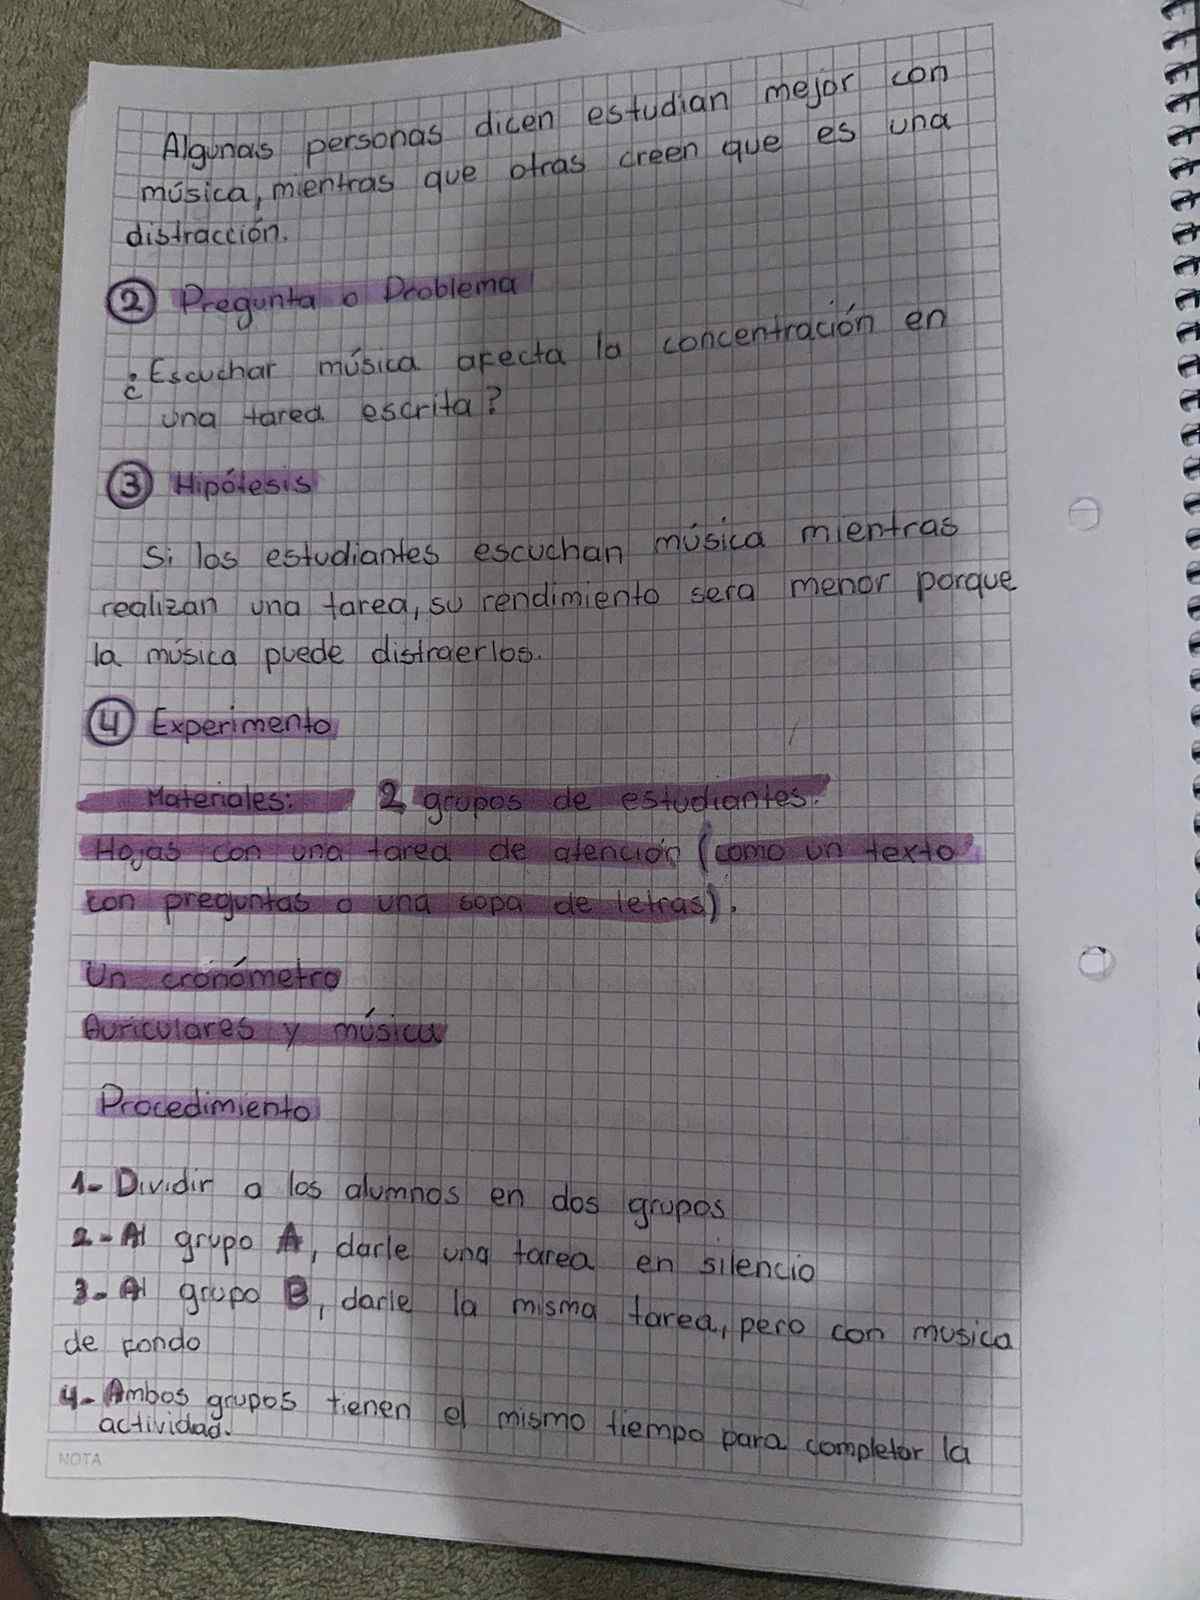 Algunas personas dicen estudian mejor con
música, mientras que otras creen que es una
distracción.
② Pregunta o Problema
¿Escuchar música afecta la concentración en
una tarea escrita?
③ Hipótesis
Si los estudiantes escuchan música mientras
realizan una tarea, su rendimiento sera menor porque
la música puede distraerlos.
④ Experimento
Materiales: 2 grupos de estudiantes.
Hojas con una tarea de atención (como un texto
con preguntas o una sopa de letras).
Un cronómetro
Auriculares y música
Procedimiento
1- Dividir a los alumnos en dos grupos
2- Al grupo A, darle una tarea en silencio
3- Al grupo B, darle la misma tarea, pero con musica
de fondo
4- Ambos grupos tienen el mismo tiempo para completar la
actividad.
NOTA